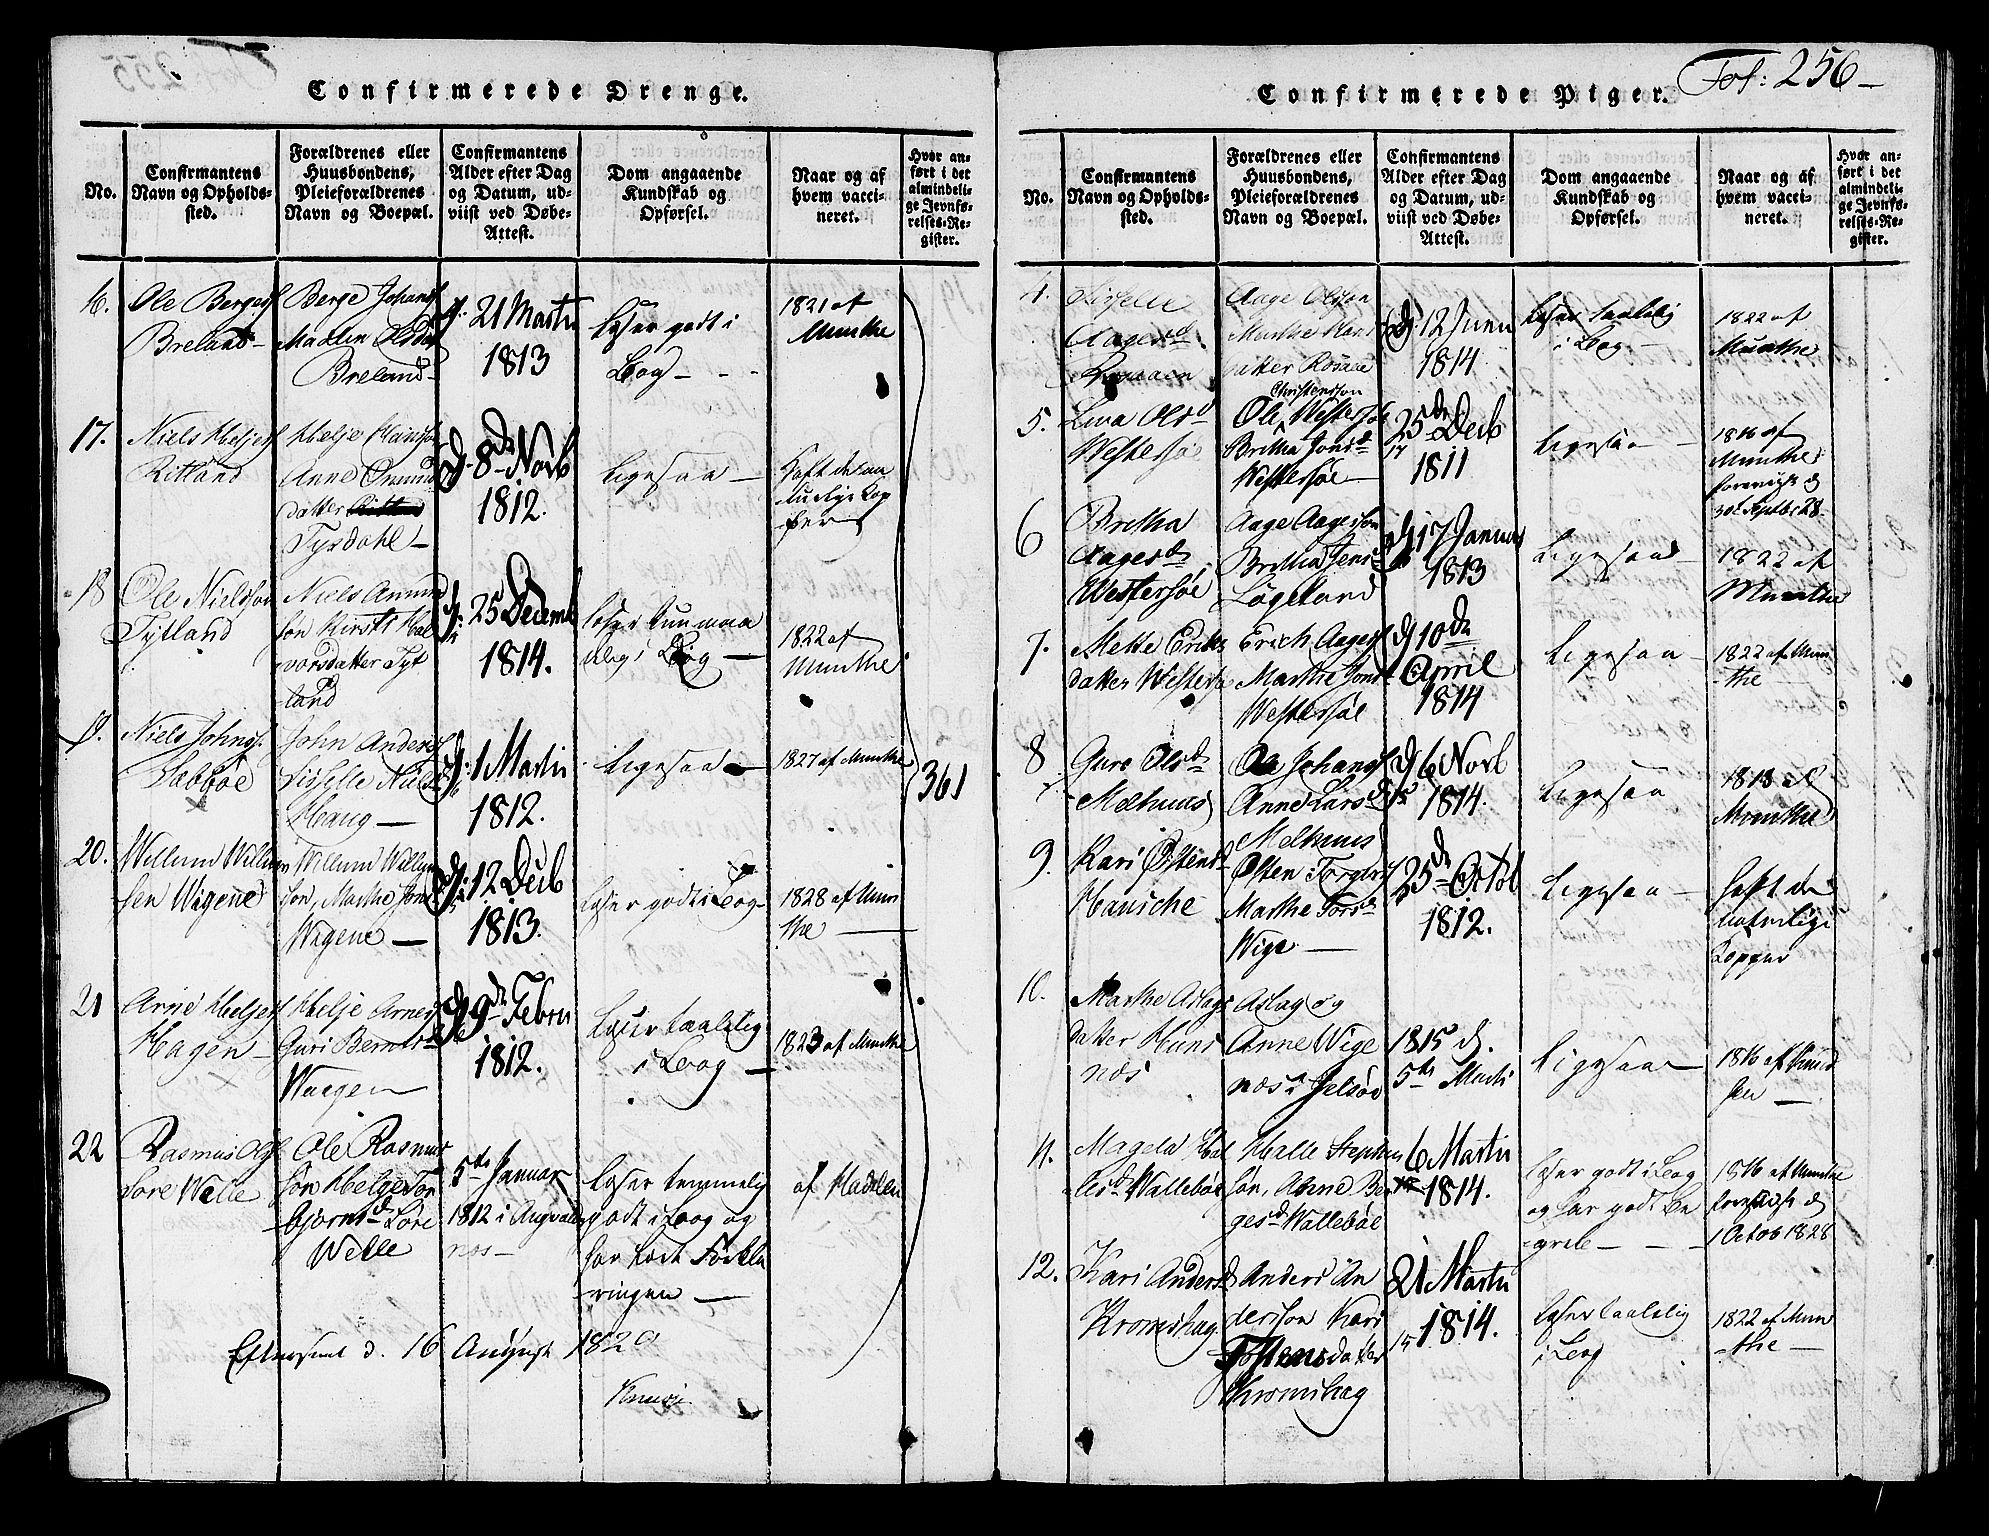 Confirmerede Drenge.
No.
Confirmantens
Navn og Opholds-
sted.
Forældrenes eller
Huusbondens,
Pleieforældrenes
Navn og Boepæl.
Confirmantens
Alder efter Dag
og Datum, ud-
viist ved Døbe-
Attest.
Dom angaaende
Kundskab og
Opførsel.
Naar og af
hvem vacci-
neret.
Hvor an-
ført i det
almindeli-
ge Jevnfø-
relses-Re-
gister.
16.
Ole Berges
Breland
Berge Johans
Madlen Olsdat
Breland
d. 21 Marti
1813
læser godt i
Bog
1821 af
Munthe
17.
Niels Heljes
Ritland
Helje Hansson
Anne Omund
datter
Tysdahl
d. 8de Novb
1812.
Ligesaa
Haft de na
turlige Kop
per
18
Ole Nielsson
Tytland
Niels Amund
søn Kirsti Hal
vorsdatter Tyt
land
d. 25 Decemb
1814.
læser kun maa
delig i Bog
1822 af
Munthe
19.
Niels Johns.
Sæbbøe
John Anders
Sisselle Niels
Haug
d. 1 Marti
1812.
Ligesaa
1827 af Munthe
361
20.
Willum Willum
sen Wigene
Willum Willum
søn, Marthe Jons
Wigene
d. 12 Decb
1813.
læser godt i Bog
1828 af Mun
the
21
Arne Heljes
Hagen
Helje Arnes
Guri Bernts
Hagen
d 9de Febru
1812.
læser taalelig
i Bog
1823 af Munthe
22
Rasmus Ols
Søre Welle
Ole Rasmus
søn Helge Tor
bjørnsd Søre
Welle
5te Januar
1812 i Augvalds
nes
læser temmelig
godt i Bog og
har lært Forkla
ringen
af Hadlen
Efterseet d. 16 August 1829
Confirmerede Piger.
Fol: 256
No.
Confirmantens
Navn og Opholds-
sted.
Forældrenes eller
Huusbondens,
Pleieforældrenes
Navn og Boepæl.
Confirmantens
Alder efter Dag
og Datum, ud-
viist ved Døbe-
Attest.
Dom angaaende
Kundskab og
Opførsel.
Naar og af
hvem vacci-
neret.
Hvor an-
ført i det
almindeli-
ge Jevnfø-
relses-Re-
gister.
4.
Sisselle
Aagesd
Aage Olson
Marthe Hans
datter
d. 12 Juni
1814
læser taalelig
i Bog
1822 af
Munthe
5.
Liva Olsd
Westersøe
Christensson
Ole Westersøe
Britha Jonsd
Westersøe
25de Decb
17
1811
Ligesaa
1816 af
Munthe
foreviist d
30t Septbr 28
6
Britha
Aagesd
Westersøe
Aage Aagesson
Britha Jens
Løgeland
d 17 Januar
1813
Ligesaa
1822 af
Munthe
7.
Mette Eriks
datter Westersø
Erich Aages
Marthe Jons
Westersøe
d 10de
April
1814
Ligesaa
1822 af Mun
the
8
Guro Olsd
Melhuus
Ole Johans
Anne Larsd
Melhuus
d 6 Novb
1814.
Ligesaa
1818 af
Munthe
9.
Kari Østensd
Hauske
Østen Torgers
Marthe Torsd
Wige
25de Octob
1812.
Ligesaa
Haft de
naturlige
Kopper
10.
Marthe Aslags
datter Huns
næs
Aslag og
Anne Wige
næs i Jelsøe
1815 d.
5te Marti
Ligesaa
1816 af Knud
sen
11.
Magela Hal
lesd Wallebøe
Halle Stephen
søn, Anne Ber
gesd Wallebøe
6 Marti
1814.
læser godt i Bog
og har godt Be
greb
1816 af Munthe
foreviist d
1 Octob 1828
12.
Kari Andersd
Kromshag
Anders An
dersson Kari
Tostensdatter
Kromshag
21 Marti
15
1814.
læser taalelig
i Bog
1822 af Mun
the